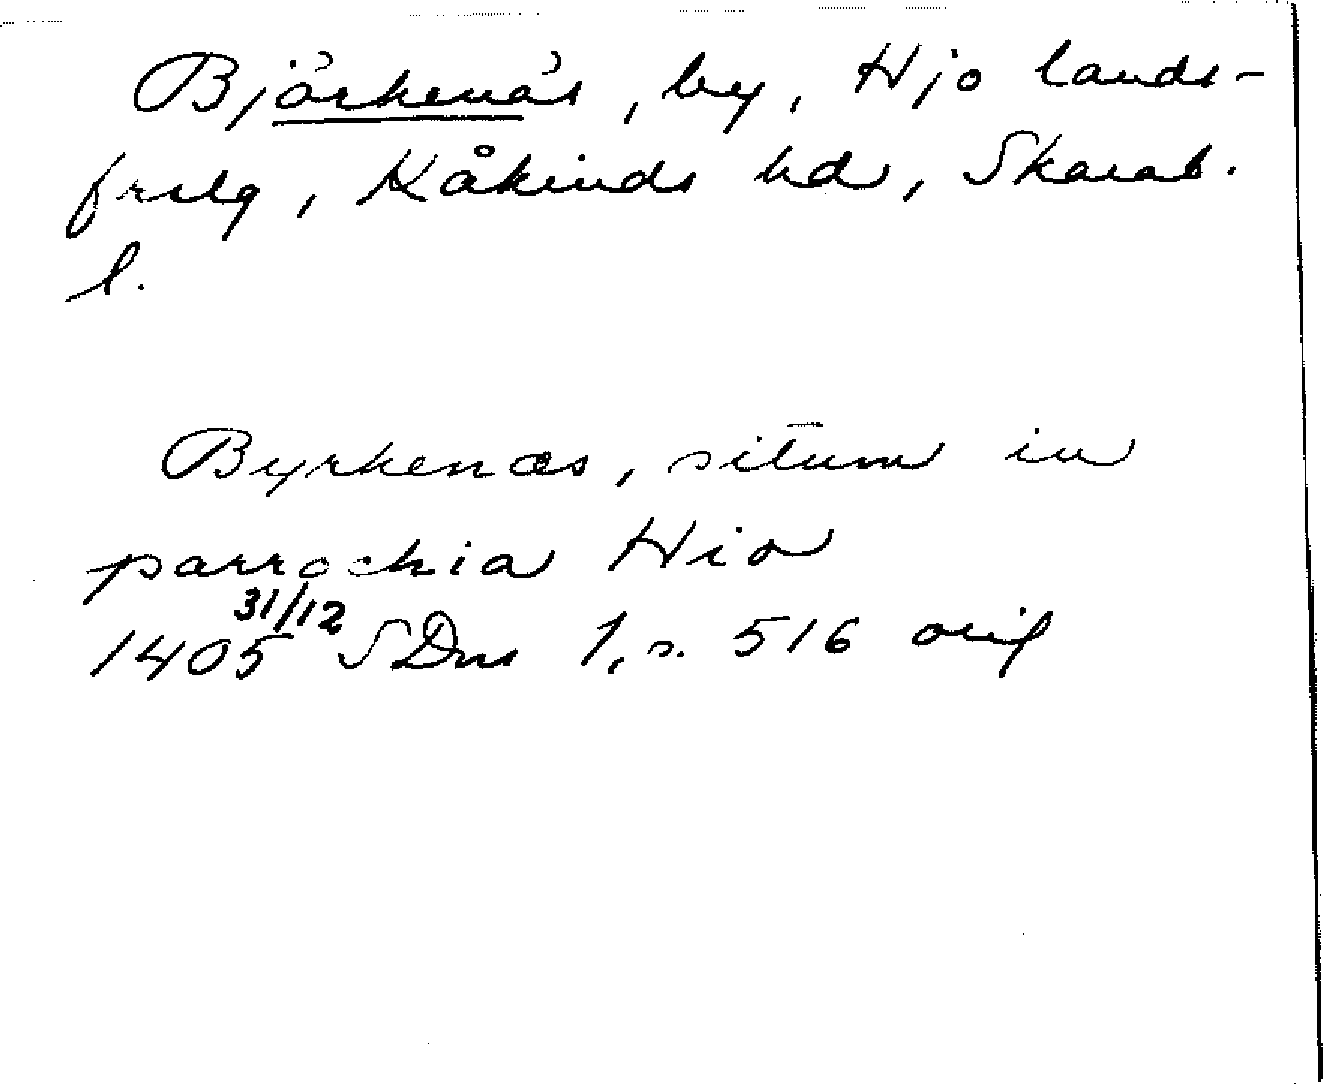 Björkenäs, by, Hjo lands-
frslg, Kåkinds hd, Skarab.
l.
Byrkenæs, situm in
parrochia Hio
1405 31/12 SDns 1, s. 516 orig